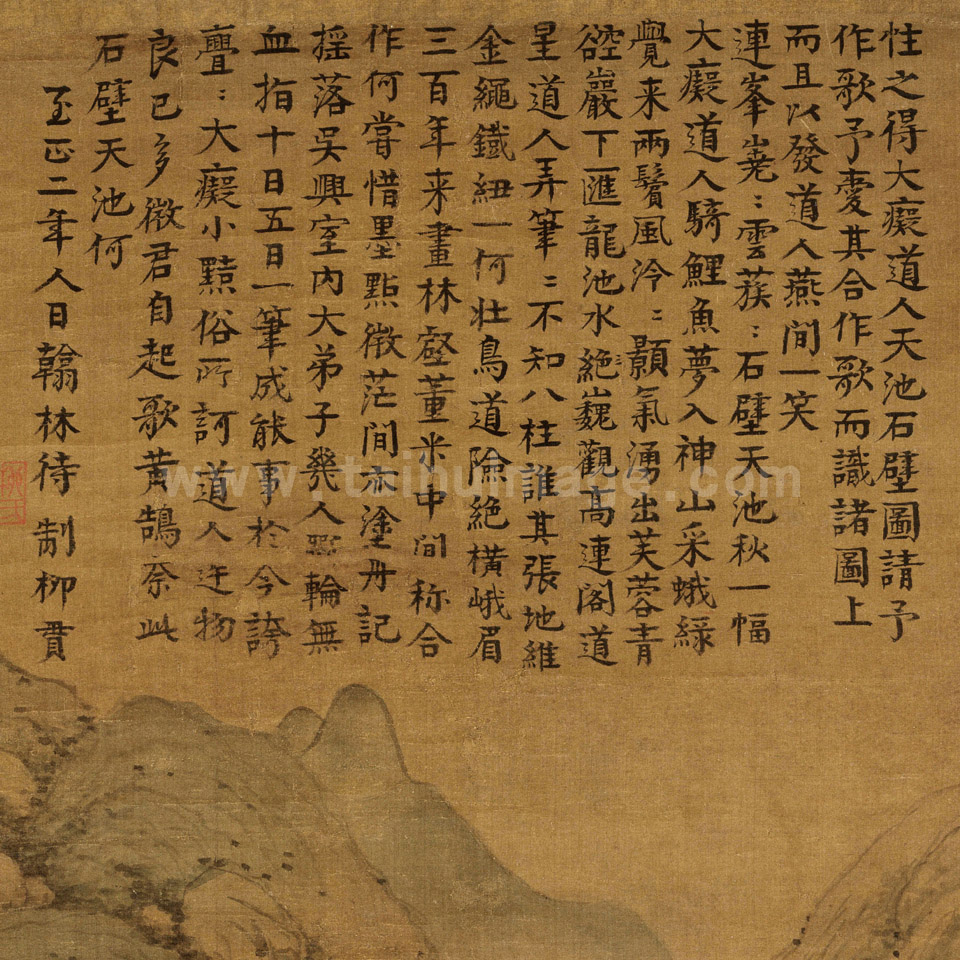 性之得大癡道人天池石壁圖請予
作歌予憂其合作歌而識諸圖上
而且以發道人燕間一笑
連峯嶤〻雲蔟〻石壁天池秋一幅
大癡道人騎鯉魚夢入神山采蛾綠
覺来兩鬢風泠〻顥氣湧出芙蓉青
硿巖下匯龍池水絶巍觀高連閣道
星道人弄筆〻不知八柱誰其張地維
金繩鐵紐一何壯鳥道險絶横峨眉
三百年来畫林壑董米中間称合
作何甞惜墨點微茫間亦塗丹記
摇落吳興室内大弟子幾人輪無
血指十日五日一筆成能事於今誇
亹〻大癡小黠俗所訶道人迕物
良已多微君自起歌黄鵠柰此
石壁天池何
至正二年人日翰林待制柳貫
www.taihuimage.com